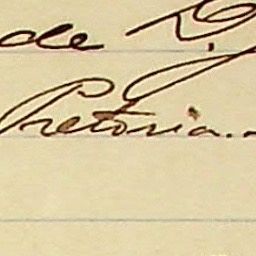 de D.
Pretoria.